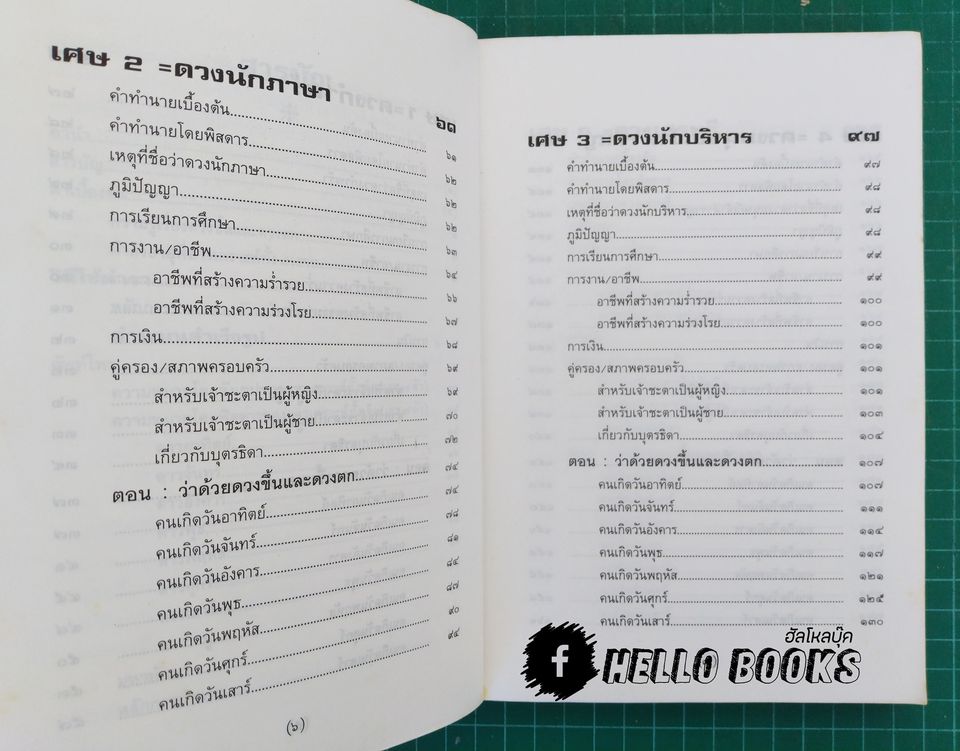 เศษ 2 =ดวงนักภาษา ๖๑
คำทำนายเบื้องต้น ๖๑
คำทำนายโดยพิสดาร ๖๒
เหตุที่ชื่อว่าดวงนักภาษา ๖๒
ภูมิปัญญา ๖๒
การเรียนการศึกษา ๖๓
การงาน/อาชีพ ๖๔
อาชีพที่สร้างความร่ำรวย ๖๖
อาชีพที่สร้างความร่วงโรย ๖๗
การเงิน ๖๘
คู่ครอง/สภาพครอบครัว ๖๙
สำหรับเจ้าชะตาเป็นผู้หญิง ๖๙
สำหรับเจ้าชะตาเป็นผู้ชาย ๗๐
เกี่ยวกับบุตรธิดา ๗๒
ตอน : ว่าด้วยดวงขึ้นและดวงตก ๗๔
คนเกิดวันอาทิตย์ ๗๔
คนเกิดวันจันทร์ ๗๘
คนเกิดวันอังคาร ๘๑
คนเกิดวันพุธ ๘๔
คนเกิดวันพฤหัส ๘๗
คนเกิดวันศุกร์ ๙๐
คนเกิดวันเสาร์ ๙๔
(๖)
เศษ 3 =ดวงนักบริหาร ๙๗
คำทำนายเบื้องต้น ๙๗
คำทำนายโดยพิสดาร ๙๘
เหตุที่ชื่อว่าดวงนักบริหาร ๙๘
ภูมิปัญญา ๙๘
การเรียนการศึกษา ๙๙
การงาน/อาชีพ ๙๙
อาชีพที่สร้างความร่ำรวย ๑๐๐
อาชีพที่สร้างความร่วงโรย ๑๐๐
การเงิน ๑๐๑
คู่ครอง/สภาพครอบครัว ๑๐๑
สำหรับเจ้าชะตาเป็นผู้หญิง ๑๐๑
สำหรับเจ้าชะตาเป็นผู้ชาย ๑๐๓
เกี่ยวกับบุตรธิดา ๑๐๔
ตอน : ว่าด้วยดวงขึ้นและดวงตก ๑๐๗
คนเกิดวันอาทิตย์ ๑๐๗
คนเกิดวันจันทร์ ๑๑๑
คนเกิดวันอังคาร ๑๑๔
คนเกิดวันพุธ ๑๑๗
คนเกิดวันพฤหัส ๑๒๑
คนเกิดวันศุกร์ ๑๒๕
คนเกิดวันเสาร์ ๑๓๐
ฮัลโหลบุ๊ค
f HELLO BOOKS